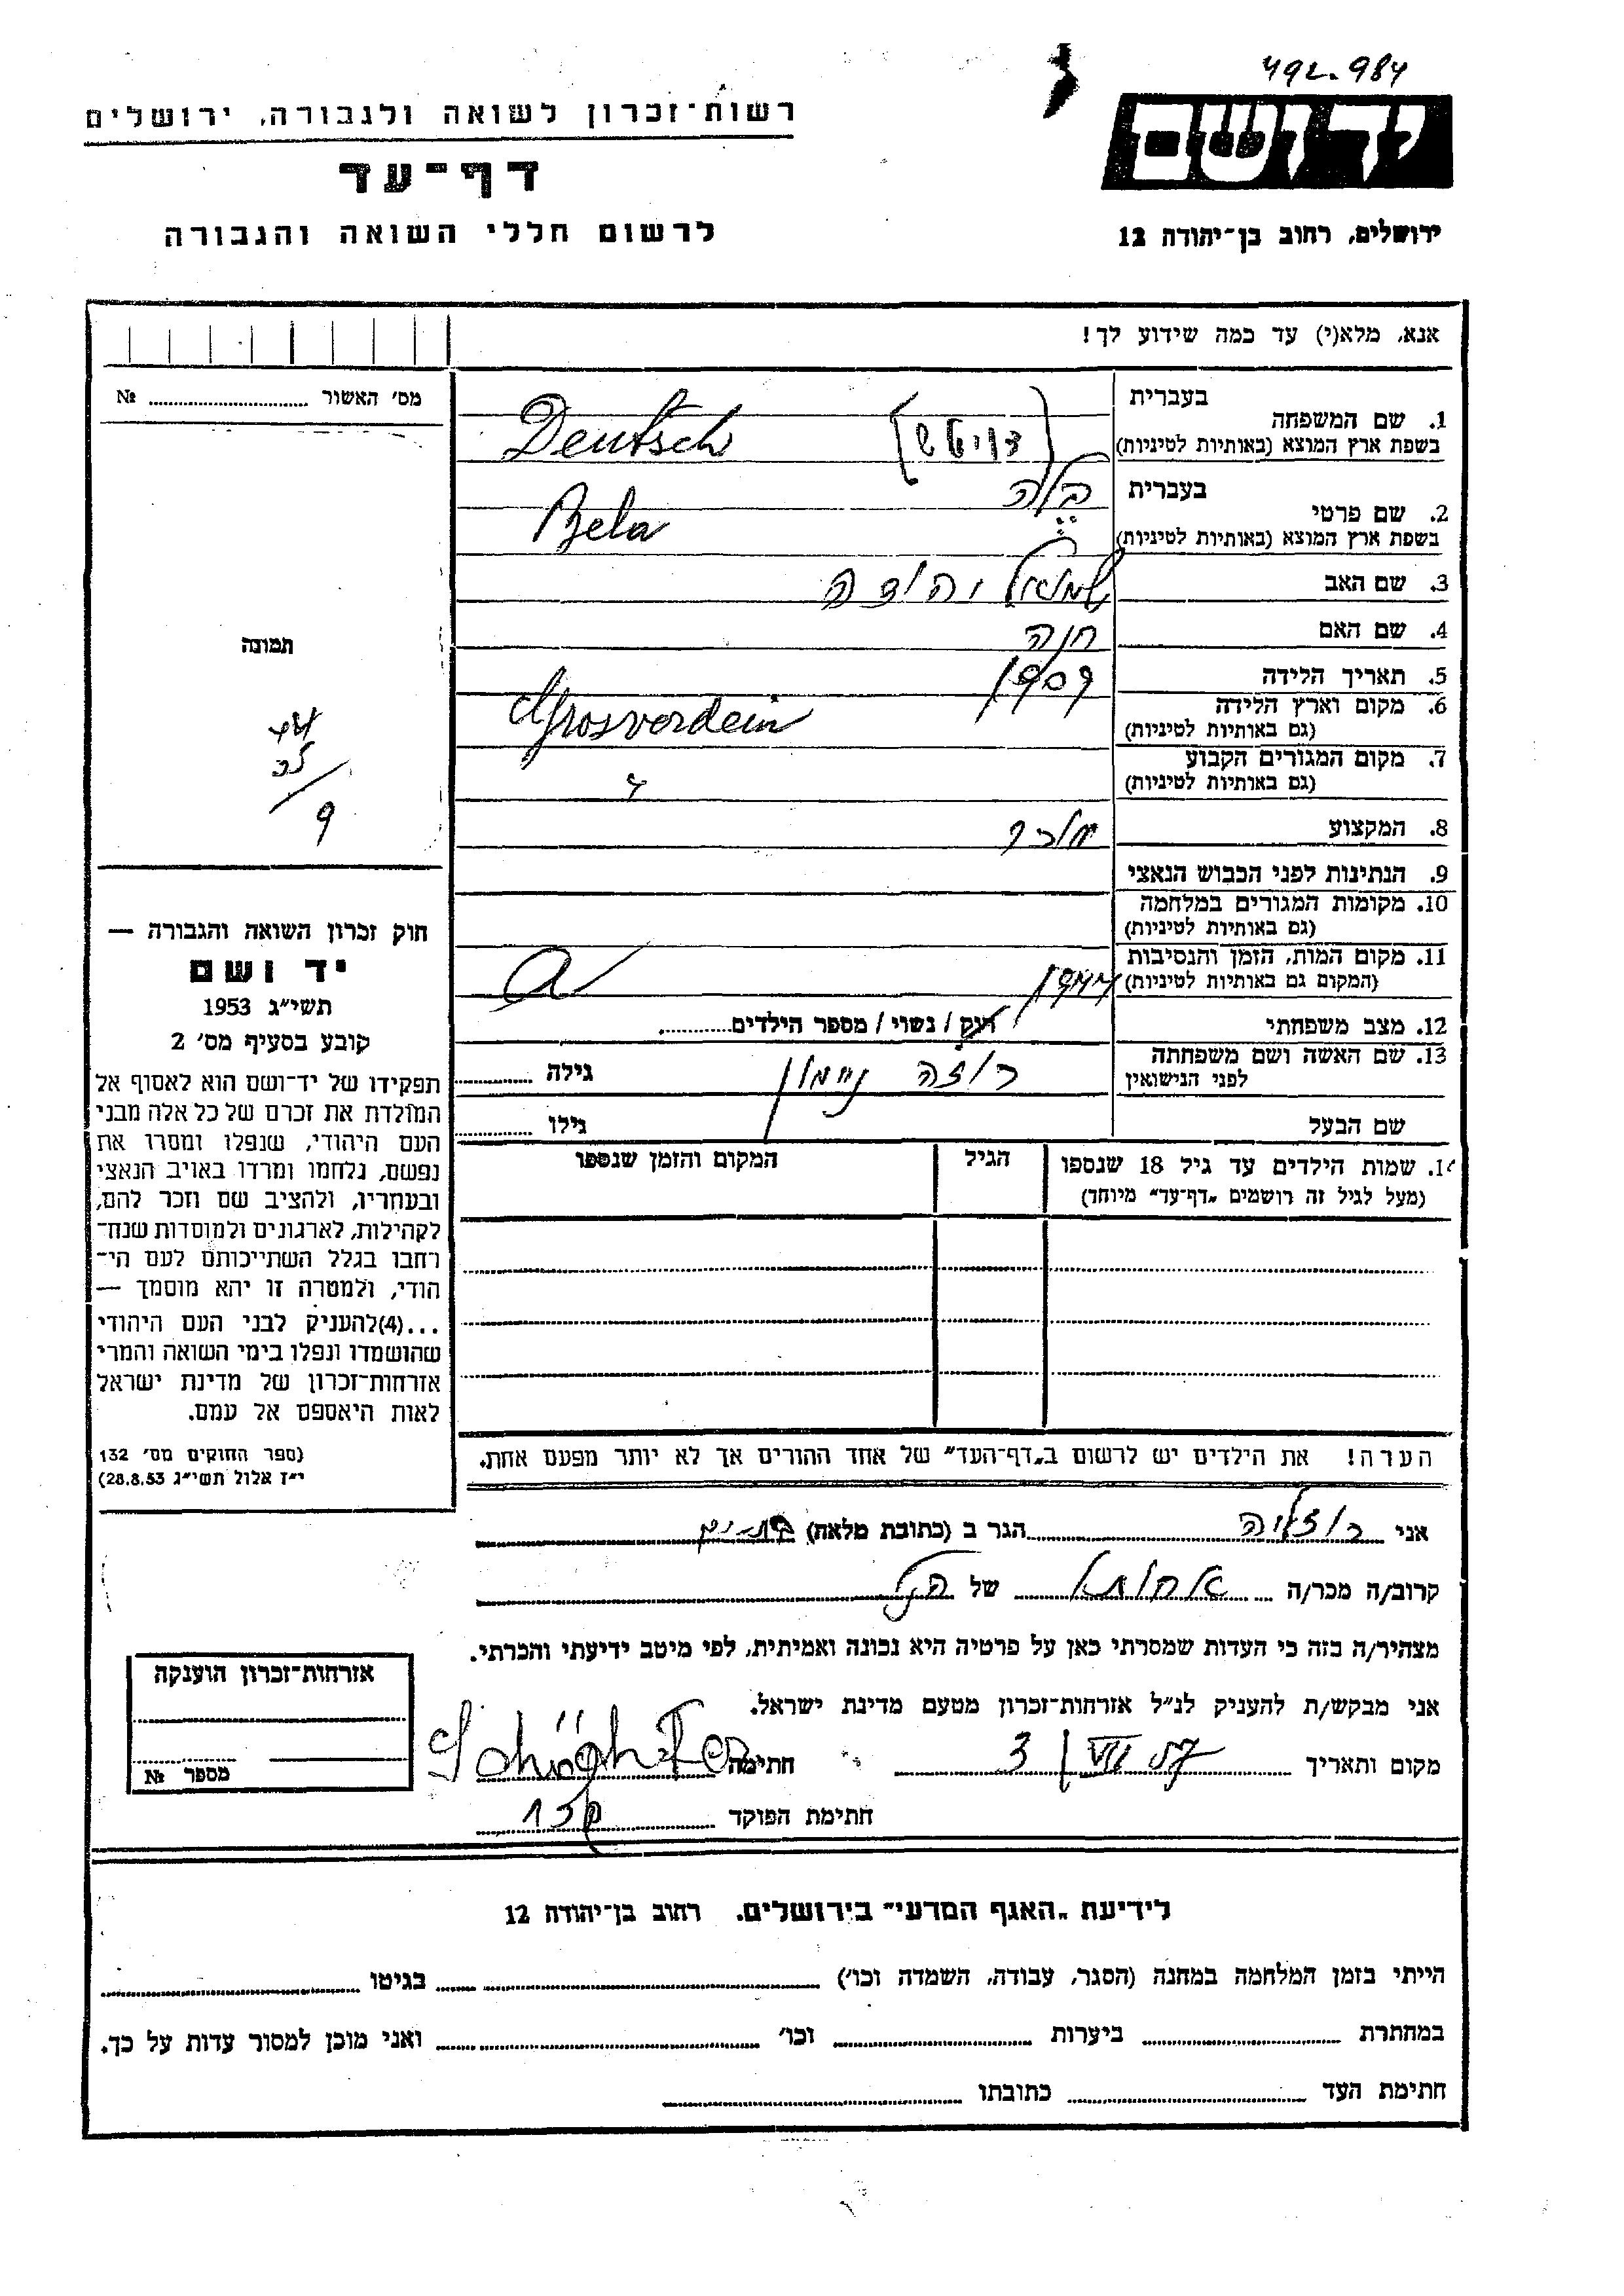 492.984
יד ושם
ירושלים, רחוב בן־יהודה 12
רשות־זכרון לשואה ולגבורה, ירושלים
דף־עד
לרשום חללי השואה והגבורה
אנא, מלא(י) עד כמה שידוע לך!
בעברית
1. שם המשפחה
בשפת ארץ המוצא (באותיות לטיניות)
[דויטש] Deutsch
בעברית
2. שם פרטי
בשפת ארץ המוצא (באותיות לטיניות)
בלה
Bela
3. שם האב שמואל יהודה
4. שם האם חנה
5. תאריך הלידה 1909
6. מקום וארץ הלידה
(גם באותיות לטיניות)
Grosverdein
7. מקום המגורים הקבוע
(גם באותיות לטיניות)
8. המקצוע
9. הנתינות לפני הכבוש הנאצי
10. מקומות המגורים במלחמה
(גם באותיות לטיניות)
11. מקום המות, הזמן והנסיבות
(המקום גם באותיות לטיניות)
1944
12. מצב משפחתי רוק / נשוי / מספר הילדים
13. שם האשה ושם משפחתה
לפני הנישואין
רוזה נוימן גילה
שם הבעל גילו
14. שמות הילדים עד גיל 18 שנספו
(מעל לגיל זה רושמים „דף־עד" מיוחד)
הגיל
המקום והזמן שנספו
הערה! את הילדים יש לרשום ב„דף־העד" של אחד ההורים אך לא יותר מפעם אחת.
מס' האשור №
תמונה
44
35
9
חוק זכרון השואה והגבורה —
יד ושם
תשי"ג 1953
קובע בסעיף מס' 2
תפקידו של יד־ושם הוא לאסוף אל
המולדת את זכרם של כל אלה מבני
העם היהודי, שנפלו ומסרו את
נפשם, נלחמו ומרדו באויב הנאצי
ובעוזריו, ולהציב שם וזכר להם,
לקהילות, לארגונים ולמוסדות שנח־
רחבו בגלל השתייכותם לעם הי־
הודי, ולמטרה זו יהא מוסמך —
...(4)להעניק לבני העם היהודי
שהושמדו ונפלו בימי השואה והמרי
אזרחות־זכרון של מדינת ישראל
לאות היאספם אל עמם.
(ספר החוקים מס' 132
י"ז אלול תשי"ג 28.8.53)
אני רוזליה הגר ב (כתובת מלאה) בת־ים
קרוב/ה מכר/ה של הנ"ל
מצהיר/ה בזה כי העדות שמסרתי כאן על פרטיה היא נכונה ואמיתית, לפי מיטב ידיעתי והכרתי.
אני מבקש/ת להעניק לנ"ל אזרחות־זכרון מטעם מדינת ישראל.
מקום ותאריך 3/VII 57 חתימה
חתימת הפוקד
אזרחות־זכרון הוענקה
מספר №
לידיעת „האגף המדעי" בירושלים. רחוב בן־יהודה 12
הייתי בזמן המלחמה במחנה (הסגר, עבודה, השמדה וכו') בגיטו
במחתרת ביערות וכו' ואני מוכן למסור עדות על כך.
חתימת העד כתובתו